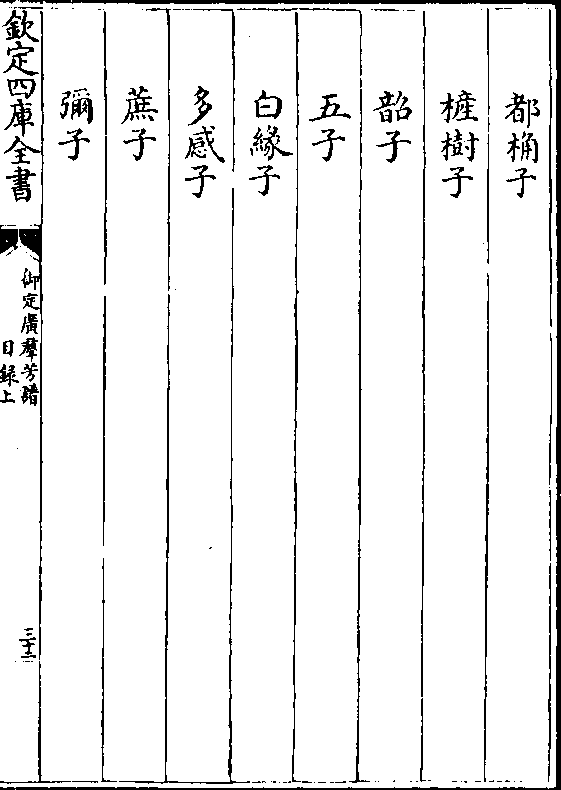 都桷子
樝樹子
韶子
五子
白緣子
多感子
蔗子
彌子
欽定四庫全書
御定廣羣芳譜
目録上
三十二